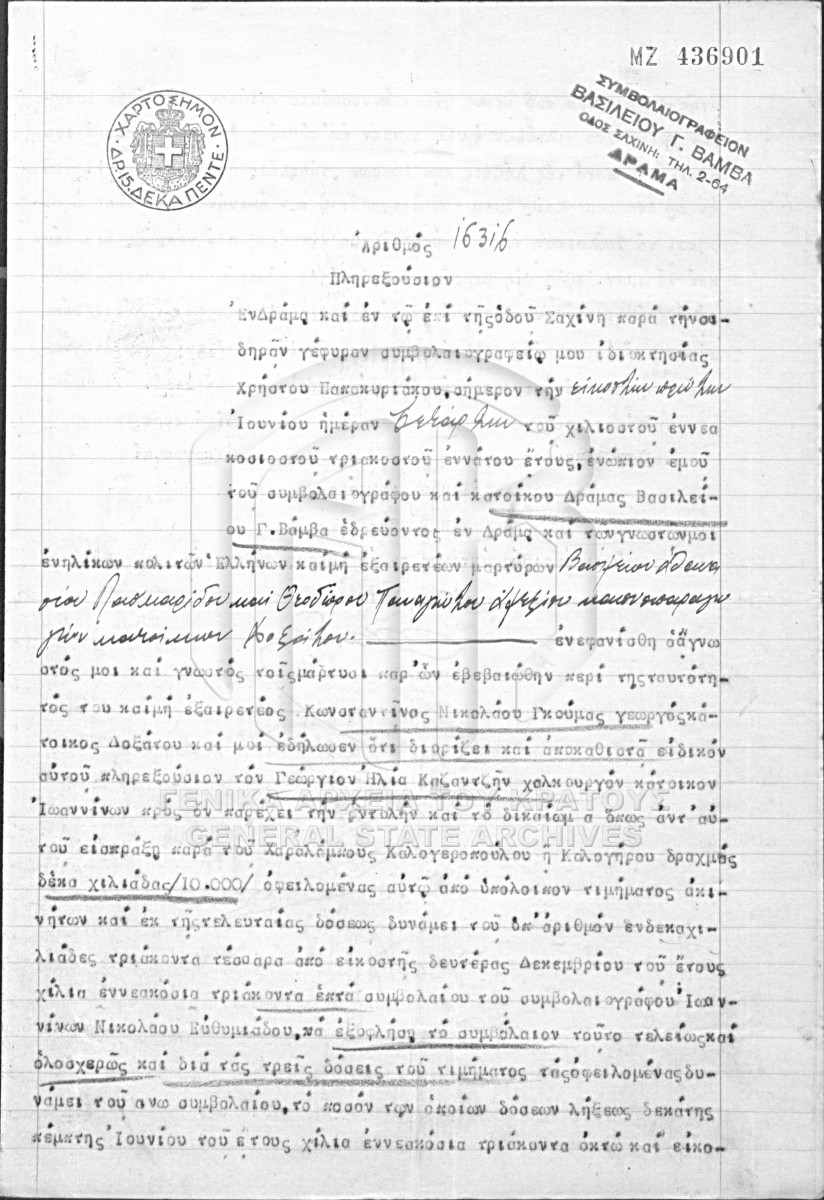 ΜΖ 436901
ΧΑΡΤΟΣΗΜΟΝ
ΔΡ.15. ΔΕΚΑ ΠΕΝΤΕ
ΣΥΜΒΟΛΑΙΟΓΡΑΦΕΙΟΝ
ΒΑΣΙΛΕΙΟΥ Γ. ΒΑΜΒΑ
ΟΔΟΣ ΣΑΧΙΝΗ: ΤΗΛ. 2-64
ΔΡΑΜΑ
Ἀριθμός 16316
Πληρεξούσιον
Ἐν Δράμᾳ καί ἐν τῷ ἐπί τῆς ὁδοῦ Σαχίνη παρά τήν σι-
δηρᾶν γέφυραν συμβολαιογραφείῳ μου ἰδιοκτησίας
Χρήστου Παπακυριάκου, σήμερον τήν εἰκοστήν πρώτην
Ἰουνίου ἡμέραν Τετάρτην τοῦ χιλιοστοῦ ἐννεα
κοσιοστοῦ τριακοστοῦ ἐννάτου ἔτους, ἐνώπιον ἐμοῦ
τοῦ συμβολαιογράφου καί κατοίκου Δράμας Βασιλεί-
ου Γ. Βάμβα ἑδρεύοντος ἐν Δράμᾳ καί τῶν γνωστῶν μοι
ἐνηλίκων πολιτῶν Ἑλλήνων καί μή ἐξαιρετέων μαρτύρων Βασιλείου Ἀθανα
σίου καί Θεοδώρου Παναγιώτου καπνοπαραγω
γῶν κατοίκων Δοξάτου. ἐνεφανίσθη ὁ ἄγνω
στός μοι καί γνωστός τοῖς μάρτυσι παρ' ὧν ἐβεβαιώθην περί τῆς ταυτότη-
τός του καί μή ἐξαιρετέος Κωνσταντῖνος Νικολάου Γκούμας γεωργός κά-
τοικος Δοξάτου καί μοί ἐδήλωσεν ὅτι διορίζει καί ἀποκαθιστᾶ εἰδικόν
αὐτοῦ πληρεξούσιον τόν Γεώργιον Ἠλία Καζαντζῆν χαλκουργόν κάτοικον
Ἰωαννίνων πρός ὅν παρέχει τήν ἐντολήν καί τό δικαίωμ α ὅπως ἀντ' αὐ-
τοῦ εἰσπράξῃ παρά τοῦ Χαραλάμπους Καλογεροπούλου ἤ Καλογήρου δραχμάς
δέκα χιλιάδας/10.000/ ὀφειλομένας αὐτῷ ἀπό ὑπόλοιπον τιμήματος ἀκι-
νήτων καί ἐκ τῆς τελευταίας δόσεως δυνάμει τοῦ ὑπ' ἀριθμόν ἑνδεκαχι-
λιάδες τριάκοντα τέσσαρα ἀπό εἰκοστῆς δευτέρας Δεκεμβρίου τοῦ ἔτους
χίλια ἐννεακόσια τριάκοντα ἑπτά συμβολαίου τοῦ συμβολαιογράφου Ἰωαν-
νίνων Νικολάου Εὐθυμιάδου, νά ἐξοφλήσῃ τό συμβόλαιον τοῦτο τελείως καί
ὁλοσχερῶς καί διά τάς τρεῖς δόσεις τοῦ τιμήματος τάς ὀφειλομένας δυ-
νάμει τοῦ ἄνω συμβολαίου, τό ποσόν τῶν ὁποίων δόσεων λήξεως δεκάτης
πέμπτης Ἰουνίου τοῦ ἔτους χίλια ἐννεακόσια τριάκοντα ὀκτώ καί εἰκο-
ΓΕΝΙΚΑ ΑΡΧΕΙΑ ΤΟΥ ΚΡΑΤΟΥΣ
GENERAL STATE ARCHIVES